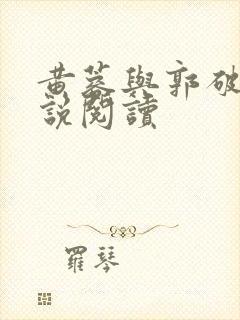 黃蓉與郭破
說閱讀
羅琴